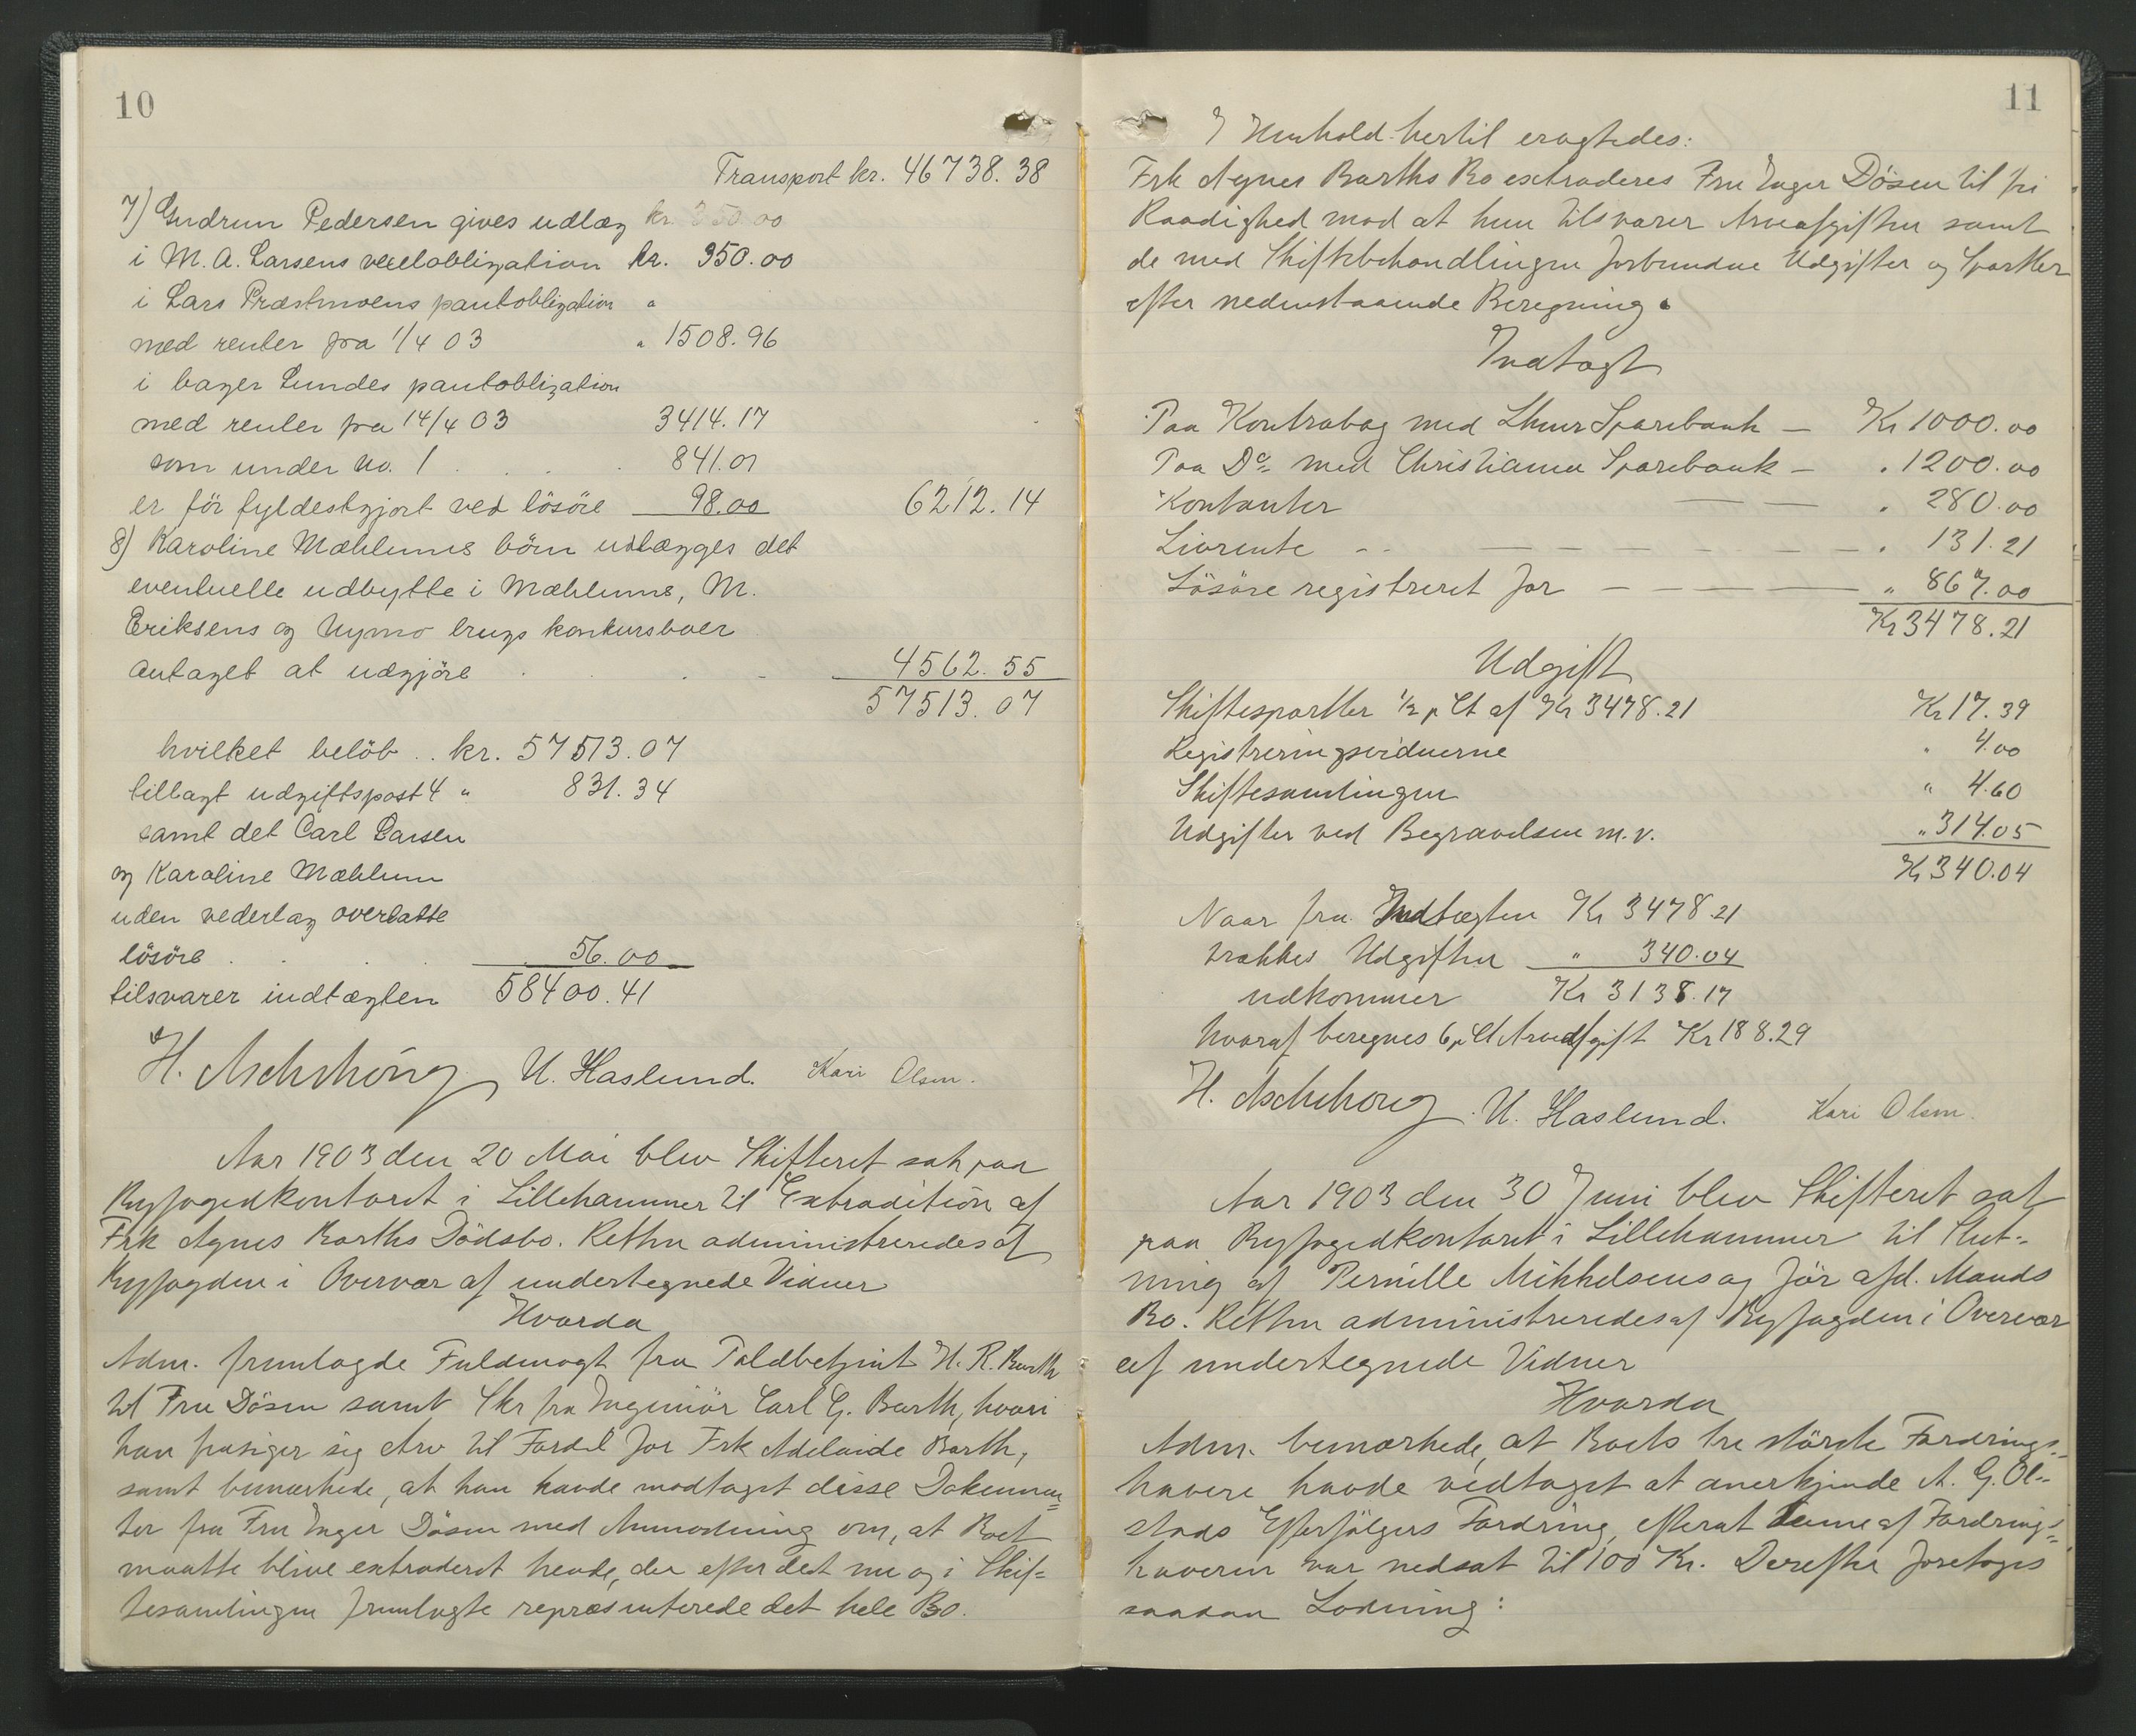 10
Transport kr. 46738.38
7) Gudrun Pedersen gives udlæg kr. 350.00
i M. A. Larsens vexelobligation kr. 350.00
i Lars Præstmoens pantobligation "
med renter fra 1/4 03 " 1508.96
i bager Lundes pantobligation
med renter fra 14/4 03 3414.17
som under no. 1 . . . 841.01
er för fyldestgjort ved lösöre 98.00 6212.14
8) Karoline Mæhlums börn udlægges det
eventuelle udbytte i Mæhlums, M.
Eriksens og Nymo brugs konkursboer
antaget at udgjöre . . . 4562.55
57513.07
hvilket belöb .. kr. 57513.07
tillagt udgiftspost 4 " 831.34
samt det Carl Larsen
og Karoline Mæhlum
uden vederlag overlatte
lösöre . . . 56.00
tilsvarer indtægten 58400.41
H. Aschehoug U. Haslund. Kari Olsen.
Aar 1903 den 20 Mai blev Skifteret sat paa
Byfogedkontoret i Lillehammer til Extradition af
Frk Agnes Barths Dödsbo. Retten administreredes af
Byfogden i Overvær af undertegnede Vidner
Hvorda
Adm. fremlagde Fuldmagt fra Toldbetjent H. R. Barth
til Fru Dösen samt Skr fra Ingeniör Carl G. Barth, hvori
han frasiger sig Arv til Fordel for Frk Adelaide Barth,
samt bemærkede, at han havde modtaget disse Dokumen=
ter fra Fru Inger Dösen med Anmodning om, at Boet
maatte blive extraderet hende, der efter det nu og i Skif=
tesamlingen fremlagte repræsenterede det hele Bo.
11
I Henhold hertil eragtedes:
Frk Agnes Barths Bo extraderes Fru Inger Dösen til fri
Raadighed mod at hun tilsvarer Arveafgiften samt
de med Skiftebehandlingen forbundne Udgifter og Sportler
efter nedenstaaende Beregning.
Indtægt
Paa Kontrabog med Lhmr Sparebank — Kr 1000.00
Paa Do. med Christiania Sparebank — " 1200.00
Kontanter — — " 280.00
Livrente - - — — — — — " 131.21
Lösöre registreret for — — — — " 867.00
Kr 3478.21
Udgift
Skiftesportler 1/2 p Ct af Kr 3478.21 Kr 17.39
Registreringsvidnerne " 4.00
Skiftesamlingen " 4.60
Udgifter ved Begravelsen m.v. " 314.05
Kr 340.04
Naar fra Indtægten Kr 3478.21
trækkes Udgiften " 340.04
udkommer Kr 3138.17
hvoraf beregnes 6 p Ct Arveafgift Kr 188.29
H. Aschehoug U. Haslund. Kari Olsen.
Aar 1903 den 30 Juni blev Skifteret sat
paa Byfogedkontoret i Lillehammer til Slut=
ning af Pernille Mikkelsens og för afd. Mands
Bo. Retten administreredes af Byfogden i Overvær
af undertegnede Vidner
Hvorda
Adm. bemærkede, at Boets tre störste Fordrings=
havere havde vedtaget at anerkjende A. G. Öl=
stads Efterfölgers Fordring, efterat denne af Fordrings=
haveren var nedsat til 100 Kr. Derefter foretoges
saadan Lodning: